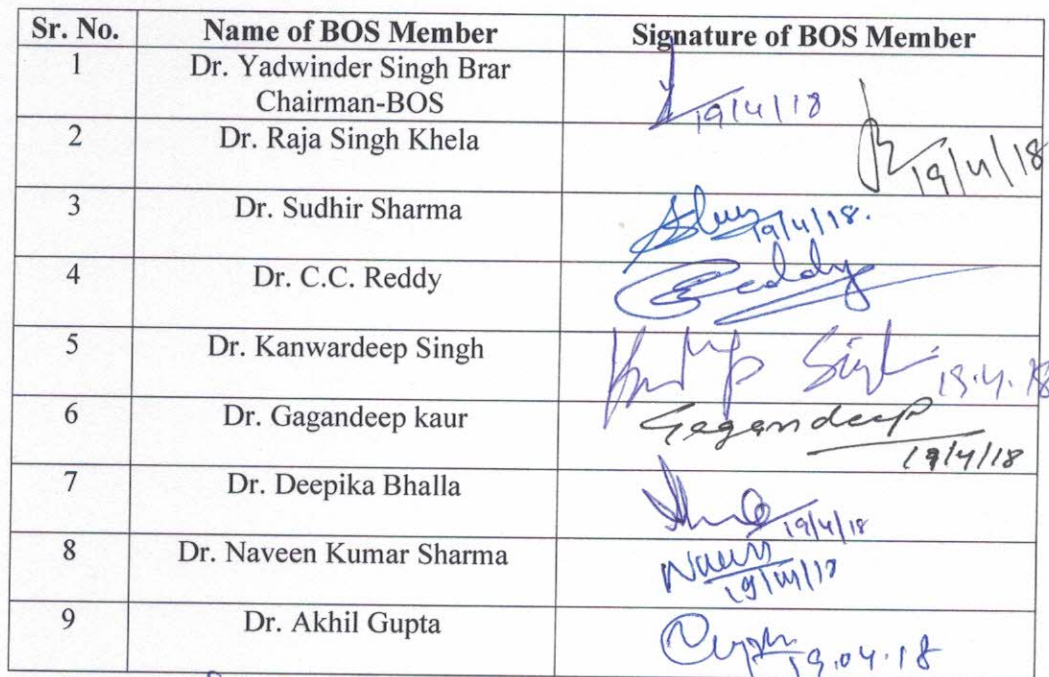 Sr. No. Name of BOS Member Signature of BOS Member
1 Dr. Yadwinder Singh Brar
Chairman-BOS
19/4/18
2 Dr. Raja Singh Khela
19/4/18
3 Dr. Sudhir Sharma
19/4/18.
4 Dr. C.C. Reddy Reddy
5 Dr. Kanwardeep Singh Singh 19.4.18
6 Dr. Gagandeep kaur Gagandeep
19/4/18
7 Dr. Deepika Bhalla
19/4/18
8 Dr. Naveen Kumar Sharma
9 Dr. Akhil Gupta
19.04.18